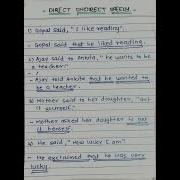 DIRECT INDIRECT SPEECH.
1) Gopal said, "I like reading".
- Gopal said that he liked reading.
2) Ajay said to Ankita, "he wants to be
a teacher".
- Ajay told Ankita that he wanted to
be a teacher.
3) Mother said to her daughter, "do
it yourself."
- Mother asked her daughter to do
it herself.
4) He said, "How lucky I am"
- He exclaimed that he was very
lucky.